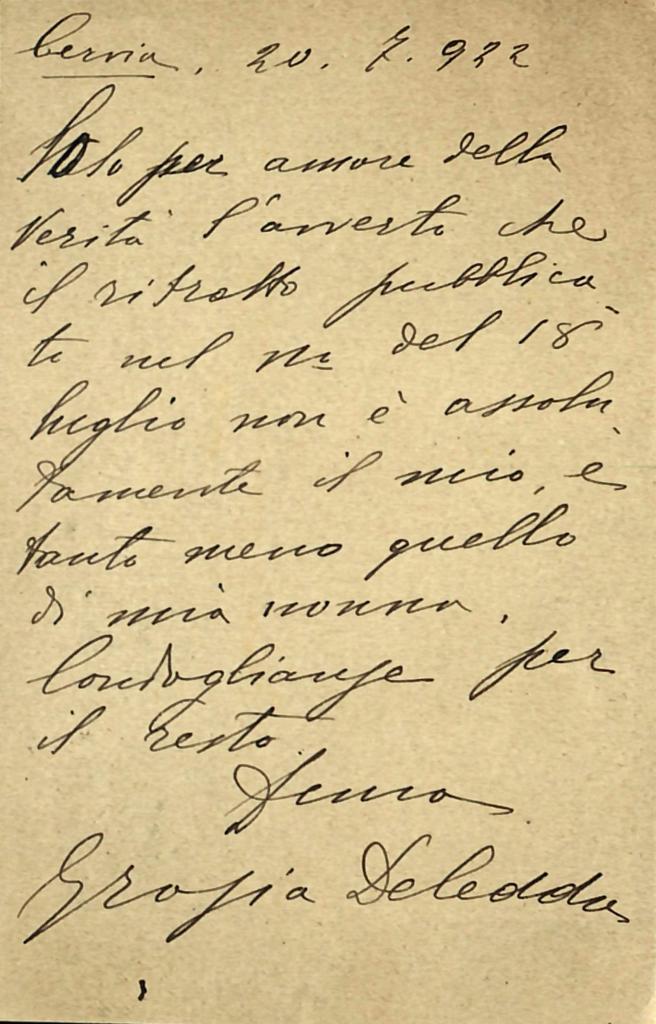 Cervia, 20. 7. 922
Solo per amore della
Verità l'avverto che
il ritratto pubblica
to nel no del 18
luglio non è assolu
tamente il mio, è
tanto meno quello
di mia nonna.
Condoglianze per
il resto
Grazia Deledda